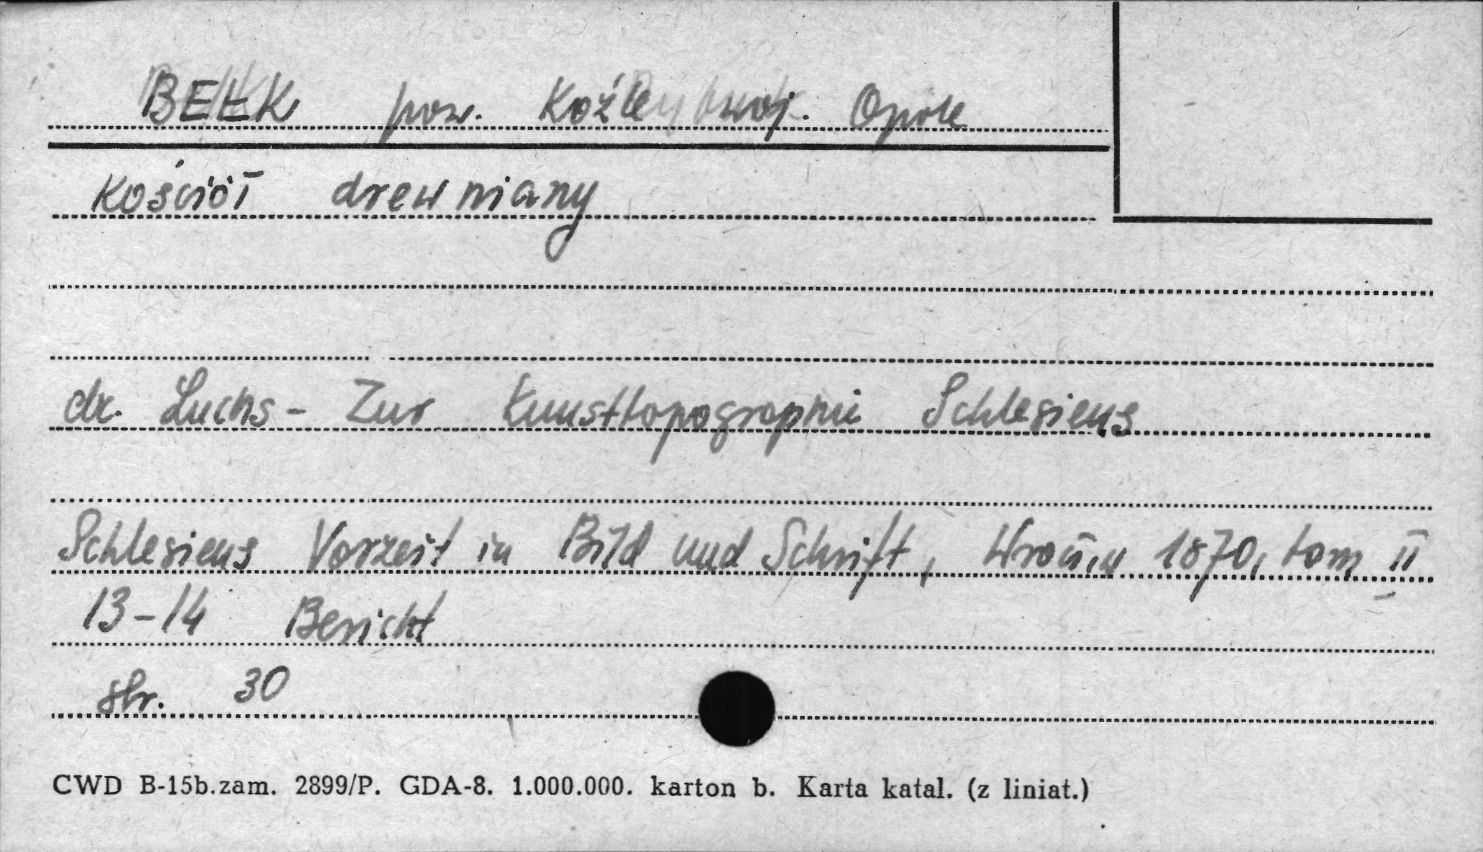 BEŁK pow. Koźle woj. Opole
Kościół drewniany
dr. Luchs - Zur Kunsttopographie Schlesiens
Schlesiens Vorzeit in Bild und Schrift, 1870, tom II
13-14 Bericht
str. 30
CWD B-15b.zam. 2899/P. GDA-8. 1.000.000. karton b. Karta katal. (z liniat.)